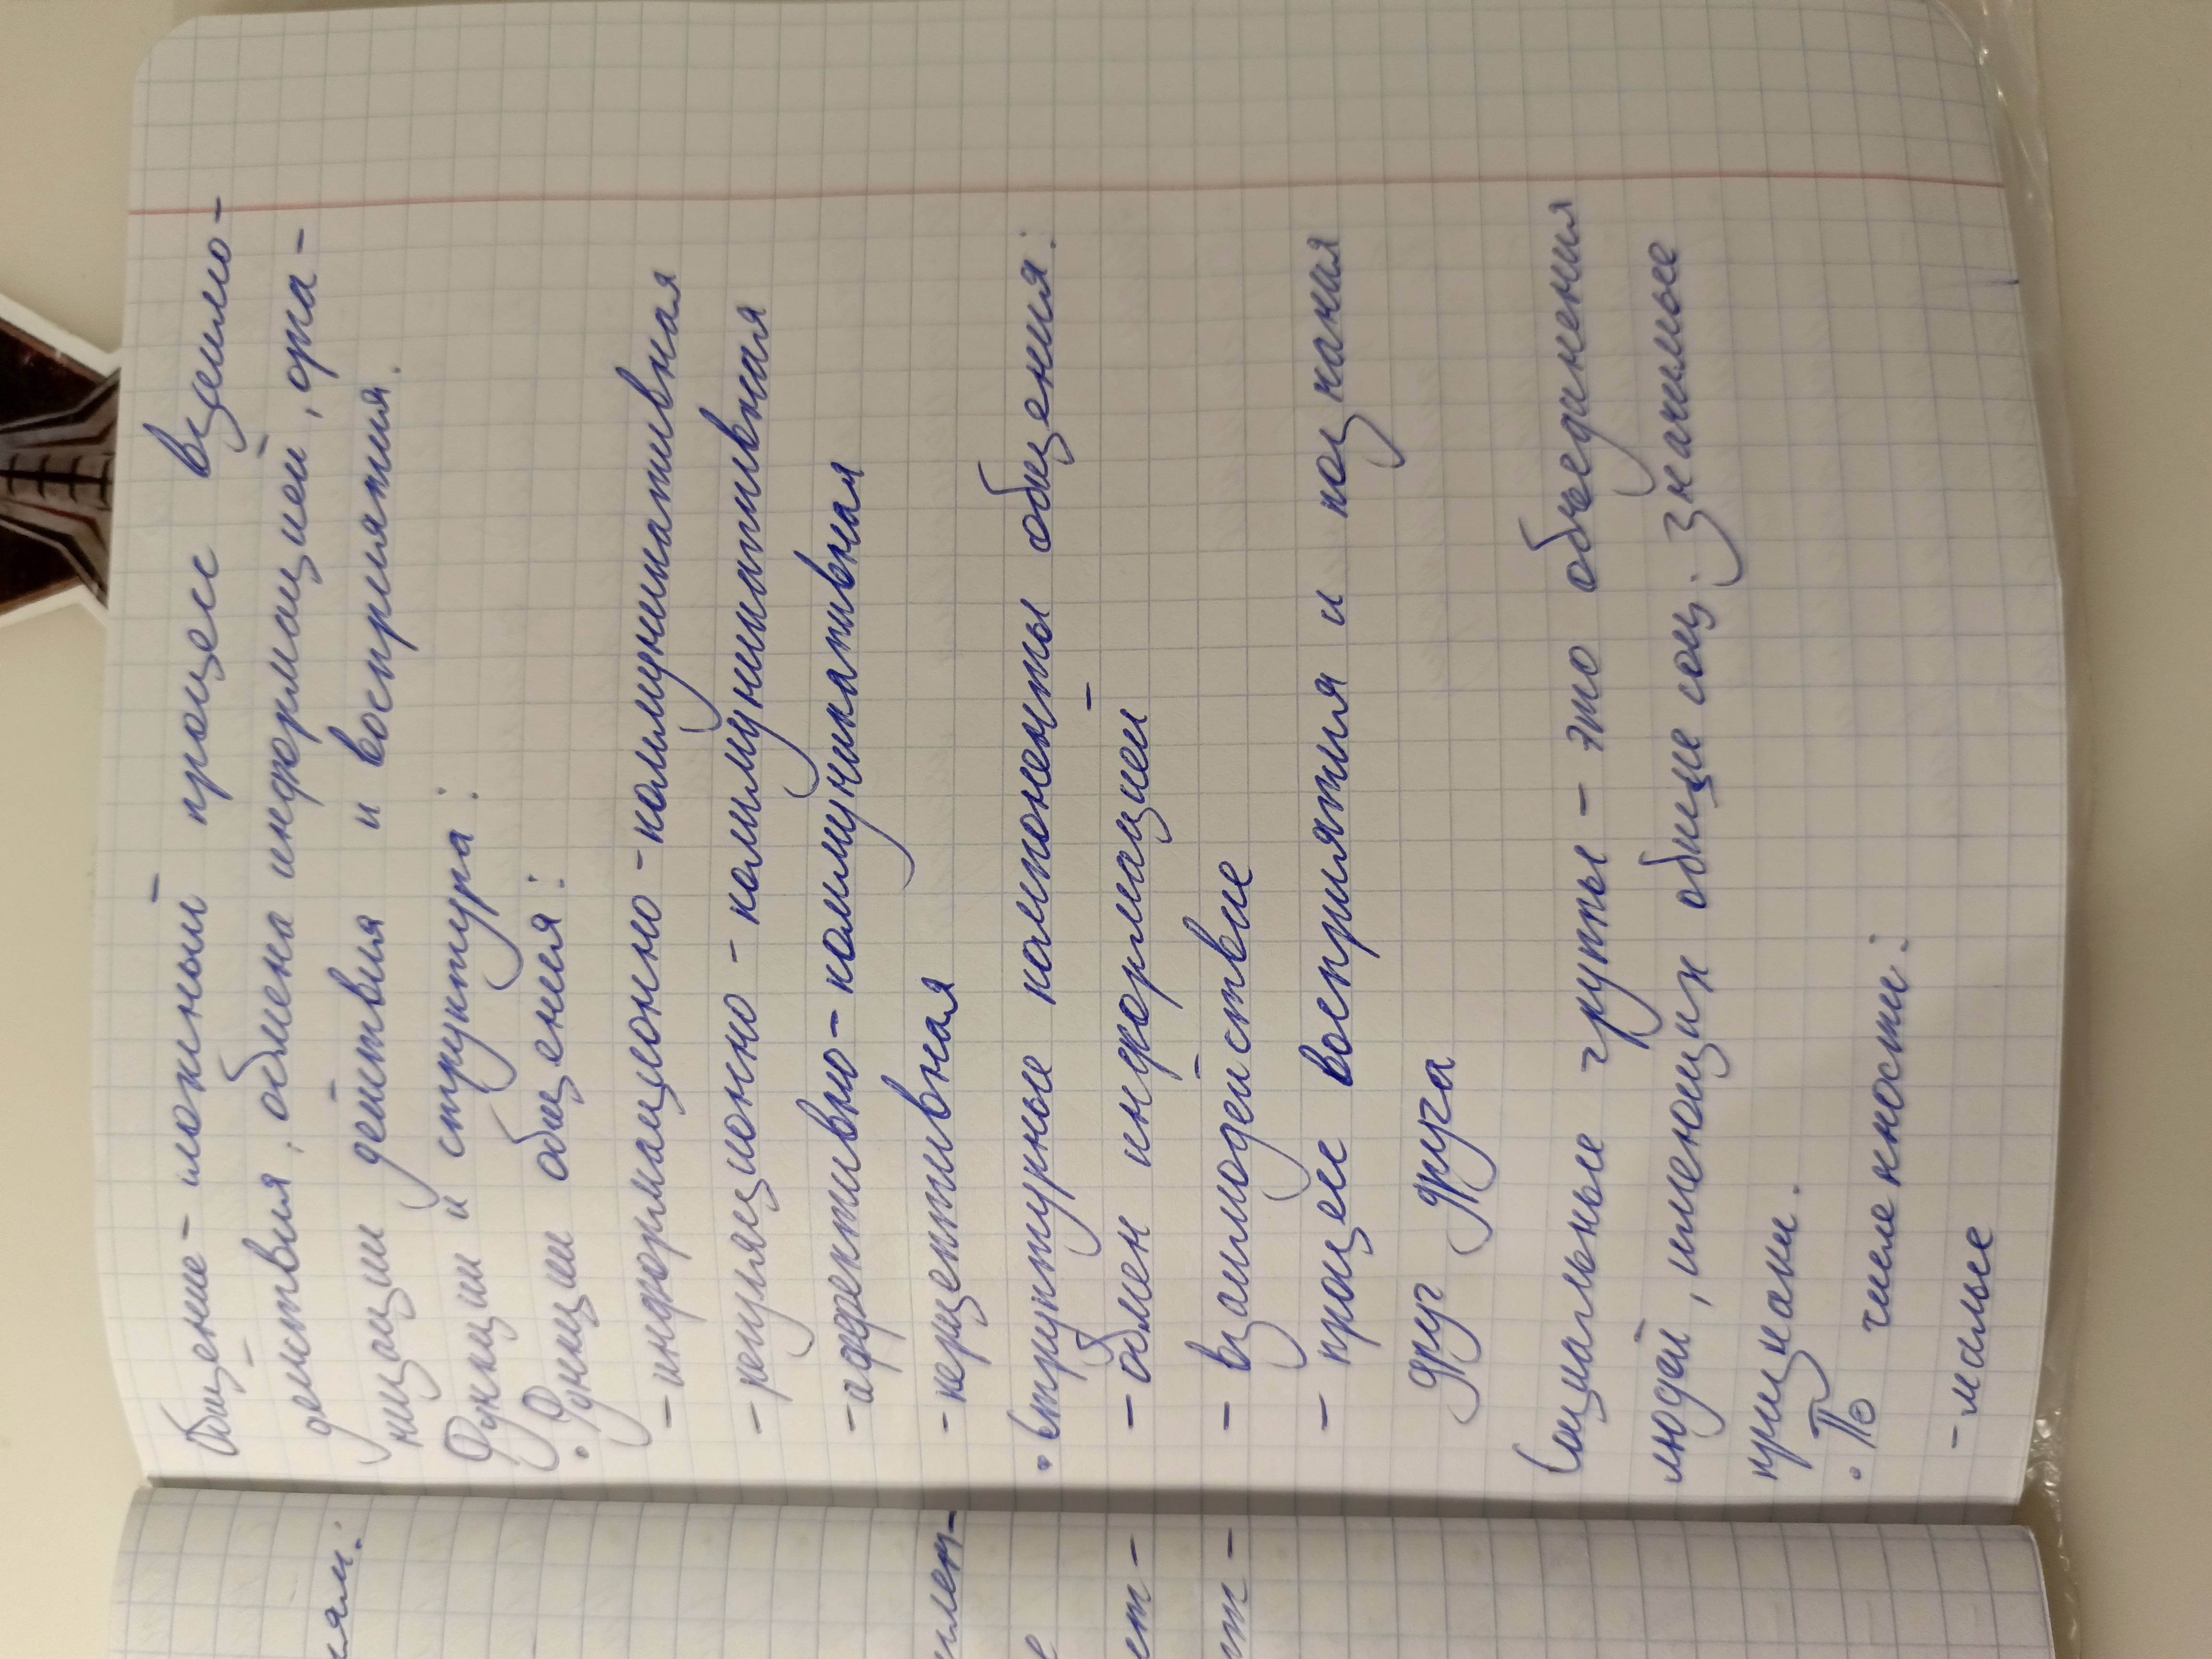 Общение - сложный процесс взаимо-
действия, обмена информацией, орга-
низации действия и восприятия.
Функции и структура:
• Функции общения:
- информационно - коммуникативная
- регуляционно - коммуникативная
- аффективно - коммуникативная
- перцептивная
• Структурные компоненты общения:
- обмен информацией
- взаимодействие
- процесс восприятия и познания
друг друга
Социальные группы - это объединения
людей, имеющих общие соц. значимые
признаки.
• По численности:
- малые
иям:
е